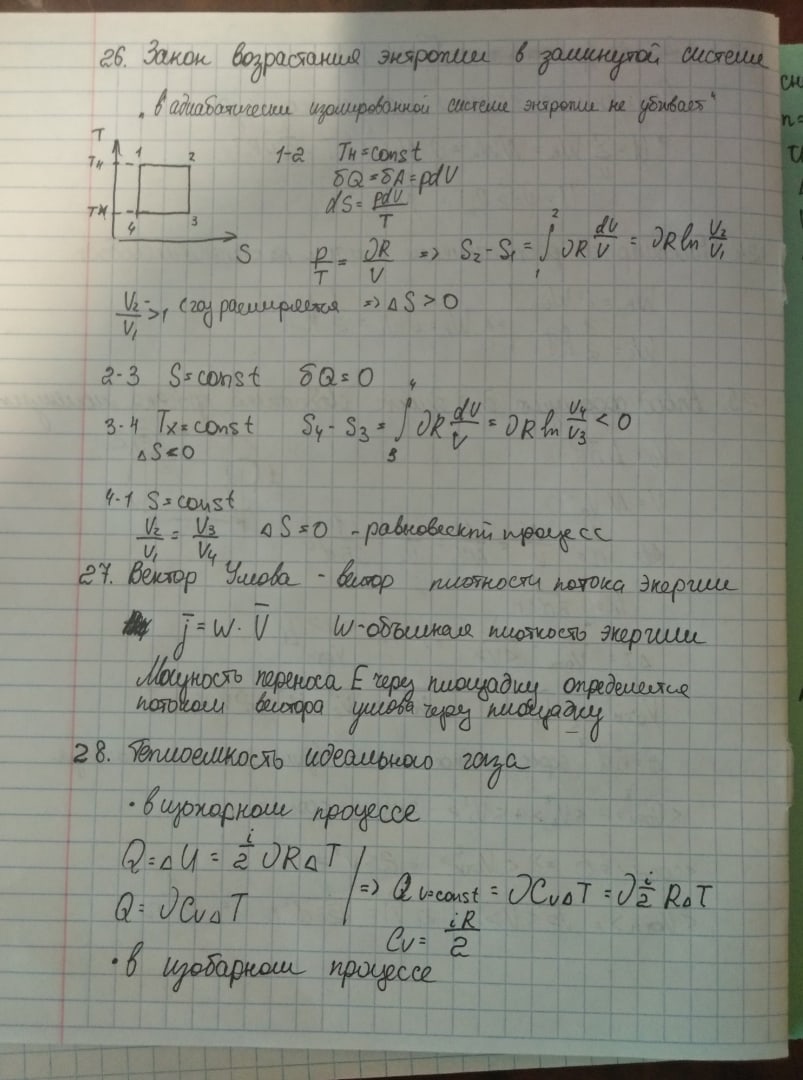 26. Закон возрастания энтропии в замкнутой системе
„в адиабатически изолированной системе энтропия не убывает"
T
Tн 1 2
Tх 4 3
S
1-2 Tн=const
δQ=δA=pdV
dS=pdV/T
p/T = νR/V => S₂-S₁ = ∫₁² νR dV/V = νR ln V₂/V₁
V₂/V₁ >1, (газ расширяется => ΔS>0
2-3 S=const δQ=0
3-4 Tх=const S₄-S₃ = ∫₃⁴ νR dV/V = νR ln V₄/V₃ < 0
ΔS<0
4-1 S=const
V₂/V₁ = V₃/V₄ ΔS=0 - равновескпй процесс
27. Вектор Умова - вектор плотности потока энергии
j̄=w·V̄ W-объемная плоткость энергии
Мощность переноса E через площадку определяется
потоком вектора умова через площадку
28. Теплоемкость идеального газа
• в изохорном процессе
Q=ΔU = i/2 νRΔT
Q=νCvΔT => Q v=const = νCvΔT = ν i/2 RΔT
Cv= iR/2
• в изобарном процессе